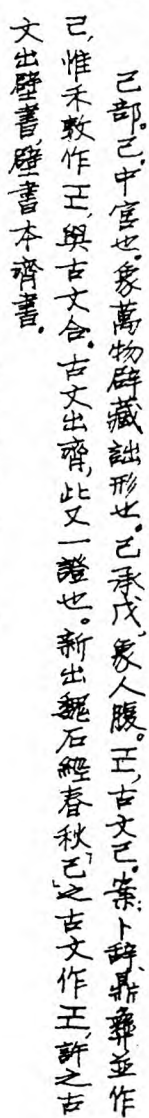 己部。己，中宮也。象萬物辟藏詘形也。己承戊，象人腹。𢀒，古文己。案：卜辭、鼎彝並作
己，惟禾敦作王，與古文合。古文出齊，此又一證也。新出魏石經春秋「己」之古文作王，許之古
文出壁書，壁書本齊書。